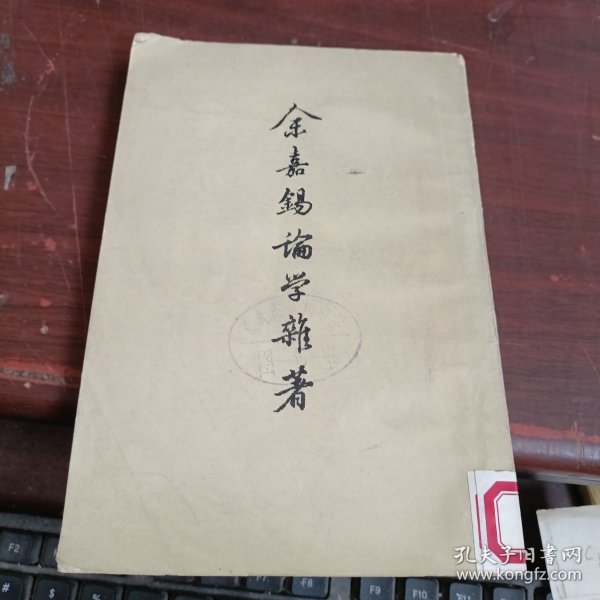 余嘉錫論学雜著
F2
F3
F8
F9
F10
#
$
孔夫子旧书网
www.kongfz.com